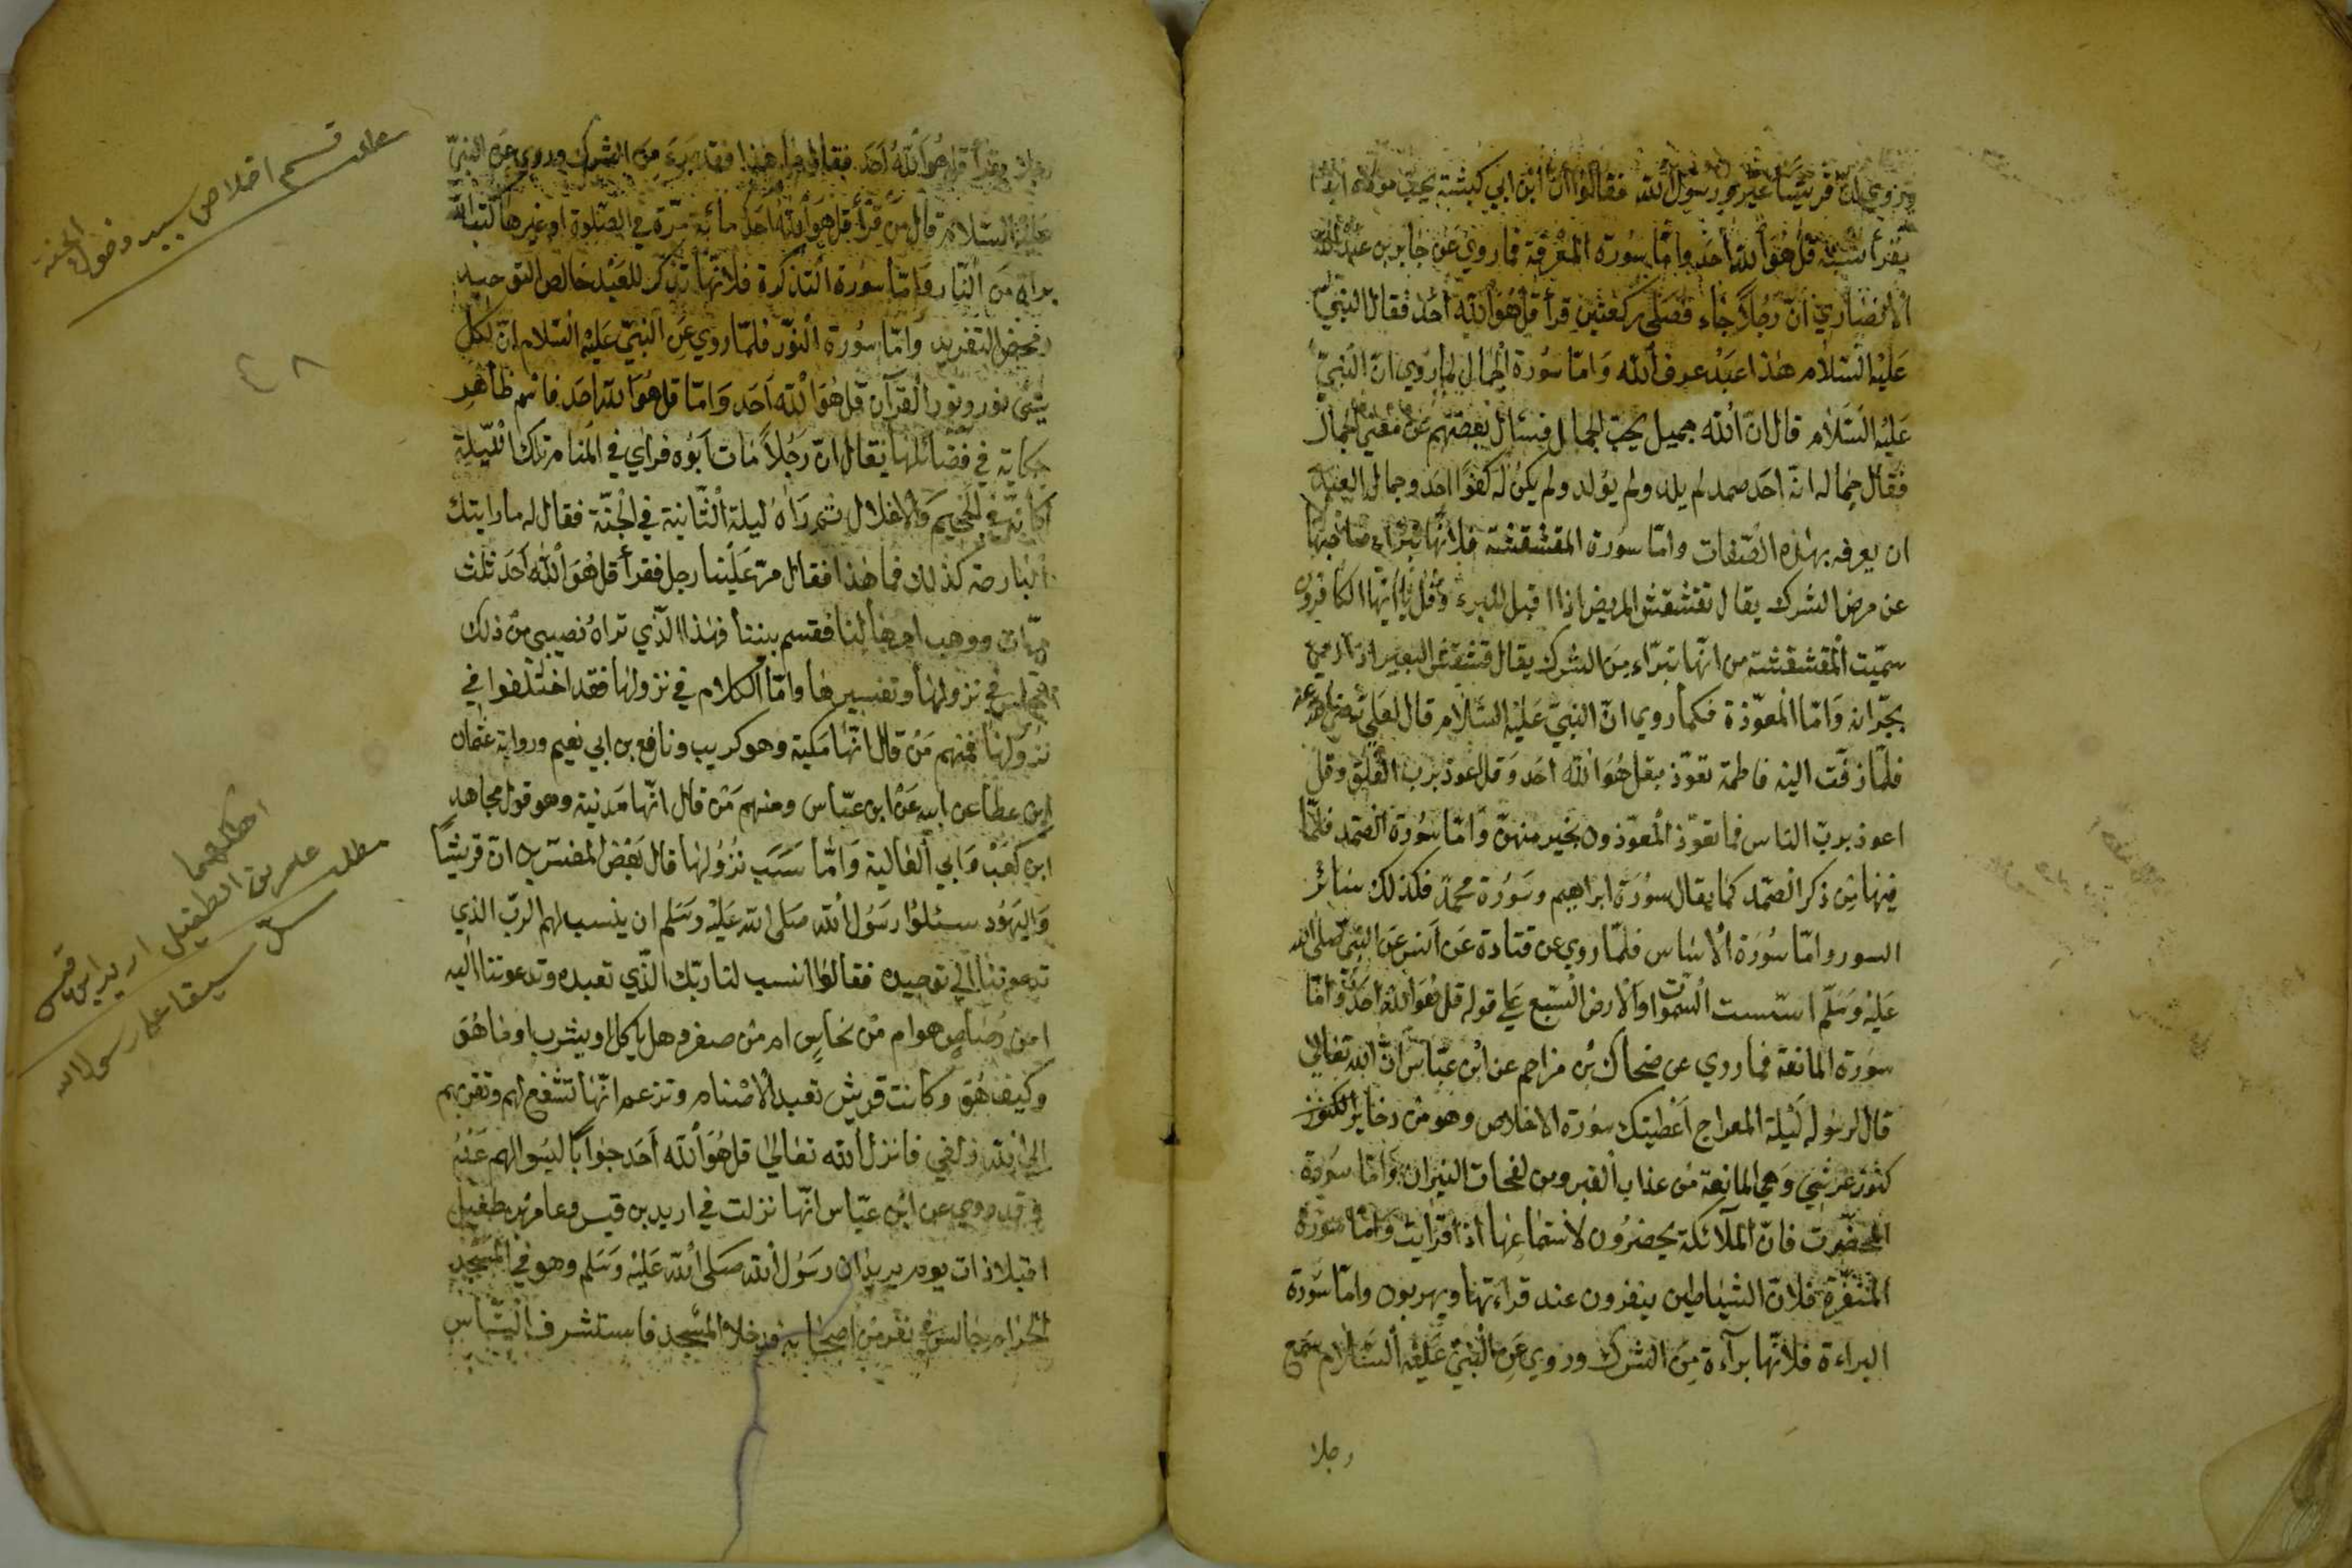 وروي ان قريشا عيروا رسول الله فقالوا ان ابن ابي كبشة يحب
يقرأ نسبة قل هو الله احد واما سورة المعرفة فما روي عن جابر بن عبد الله
الانصاري ان رجلا جاء فصلى ركعتين قرأ قل هو الله احد فقال النبي
عليه السلام هذا عبد عرف الله واما سورة الجمال لما روي ان النبي
عليه السلام قال ان الله جميل يحب الجمال فسئال بعضهم عن معنى الجمال
فقال جماله انه احد صمد لم يلد ولم يولد ولم يكن له كفوا احد وجمال العبد
ان يعرفه بهذه الصفات واما سورة المقشقشة فلانها تبراء صاحبها
عن مرض الشرك يقال تقشقش المريض اذا اقبل للبرء وقل يا ايها الكافرون
سميت المقشقشة من انها تبراء من الشرك يقال قشقش البعير اذا رمى
بجرانه واما المعوذة فكما روي ان النبي عليه السلام قال لعلي رضى الله عنه
فلما زفت اليه فاطمة تعوذ بقل هو الله احد وقل اعوذ برب الفلق وقل
اعوذ برب الناس فما تعوذ المعوذون بخير منهن واما سورة الصمد فلما
فيها من ذكر الصمد كما يقال سورة ابراهيم وسورة محمد فكذلك سائر
السور واما سورة الاساس فلما روي عن قتادة عن انس عن النبي صلى الله
عليه وسلم اسست السموات والارض السبع على قوله قل هو الله احد واما
سورة المانعة فما روي عن ضحاك بن مزاحم عن ابن عباس ان الله تعالى
قال لرسوله ليلة المعراج اعطيتك سورة الاخلاص وهو من دخاير الكنوز
كنوز عرشي وهي المانعة من عذاب القبر ومن لفحات النيران واما سورة
المحضرت فان الملائكة يحضرون لاستماعها اذا قرايت واما سورة
المنفرة فلان الشياطين ينفرون عند قراءتها ويهربون واما سورة
البراءة فلانها برآءة من الشرك وروي عن النبي عليه السلام سمع
رجلا
رجلا يقرأ قل هو الله احد فقال اما هذا فقد برء من الشرك وروي عن النبي
عليه السلام قال من قرأ قل هو الله احد مائة مرة في الصلوة او غيرها كتب الله
براة من النار واما سورة التذكرة فلانها تذكر للعبد خالص التوحيد
ومحض التفريد واما سورة النور فلما روي عن النبي عليه السلام ان لكل
شئ نور ونور القرآن قل هو الله احد واما قل هو الله احد فاسم ظاهر
حكاية في فضائلها يقال ان رجلا مات ابوه فراي في المنام تلك الليلة
كانه في الجحيم والاغلال ثم رآه ليلة الثانية في الجنة فقال له ما رايتك
البارحة كذلك فما هذا فقال مر علينا رجل فقرأ قل هو الله احد ثلث
مرات ووهب اجرها لنا فقسم بيننا فهذا الذي تراه نصيبي من ذلك
المجلس في نزولها وتفسيرها واما الكلام في نزولها فقد اختلفوا في
نزولها فمنهم من قال انها مكية وهو كريب ونافع بن ابي نعيم ورواية عثمان
ابن عطا عن ابيه عن ابن عباس ومنهم من قال انها مدنية وهو قول مجاهد
ابن كعب وابي العالية واما سبب نزولها قال بعض المفسرين ان قريشا
واليهود سئلوا رسول الله صلى الله عليه وسلم ان ينسب لهم الرب الذي
تدعوتنا الى توحيده فقالوا انسب لنا ربك الذي تعبده وتدعوتنا اليه
امن رصاص هو ام من نحاس ام من صفر وهل ياكل او يشرب او ما هو
وكيف هو وكانت قريش تعبد الاصنام وتزعم انها تشفع لهم وتقربهم
الى الله زلفى فانزل الله تعالى قل هو الله احد جوابا لسوالهم عنه
وقد روي عن ابن عباس انها نزلت في اربد بن قيس وعامر بن طفيل
اقبلا ذات يوم يريدان رسول الله صلى الله عليه وسلم وهو في المسجد
الحرام جالس في نفر من اصحابه فدخلا المسجد فاستشرف الناس
قسم اخلاص سبب دخول الجنة
٤٨
مطلب
عامر بن الطفيل اربد ابن قيس